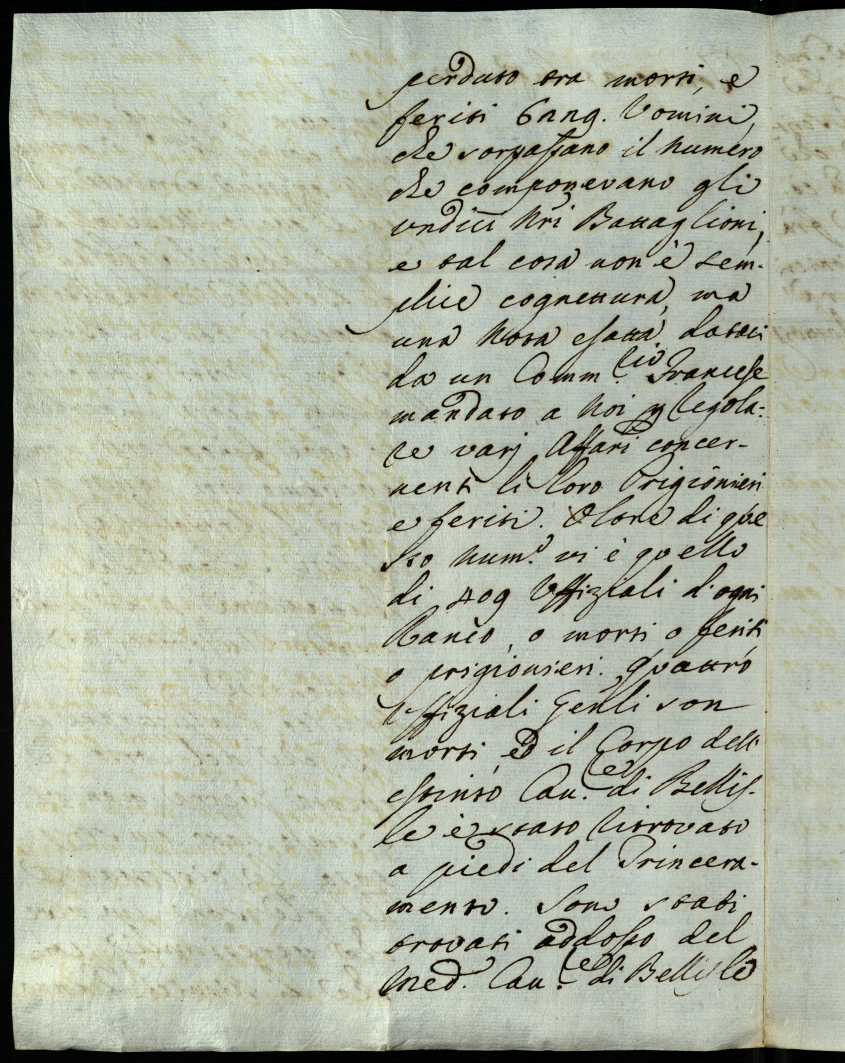 perduto tra morti, e
feriti 6nng. Vomini,
che sorpassano il numero
che componevano gli
undici Nri Battaglioni,
e tal cosa non è sem-
plice cognettura, ma
una Nota esatta, datati
da un Comm.rio Francese
mandato a Noi p Regola-
re varj Affari concer-
nenti li loro Prigionieri
e feriti. Oltre di que
sto num.o vi è quello
di 409 Uffiziali d'ogni
Rango, o morti o feriti
o prigionieri. Quattro
Uffiziali Genli son
morti, ed il Corpo dell
estinto Cau.re di Bellis-
le è stato ritrovato
a piedi del Trincera-
mento. Sono stati
trovati addosso del
Med. Cau.re di Bellisle